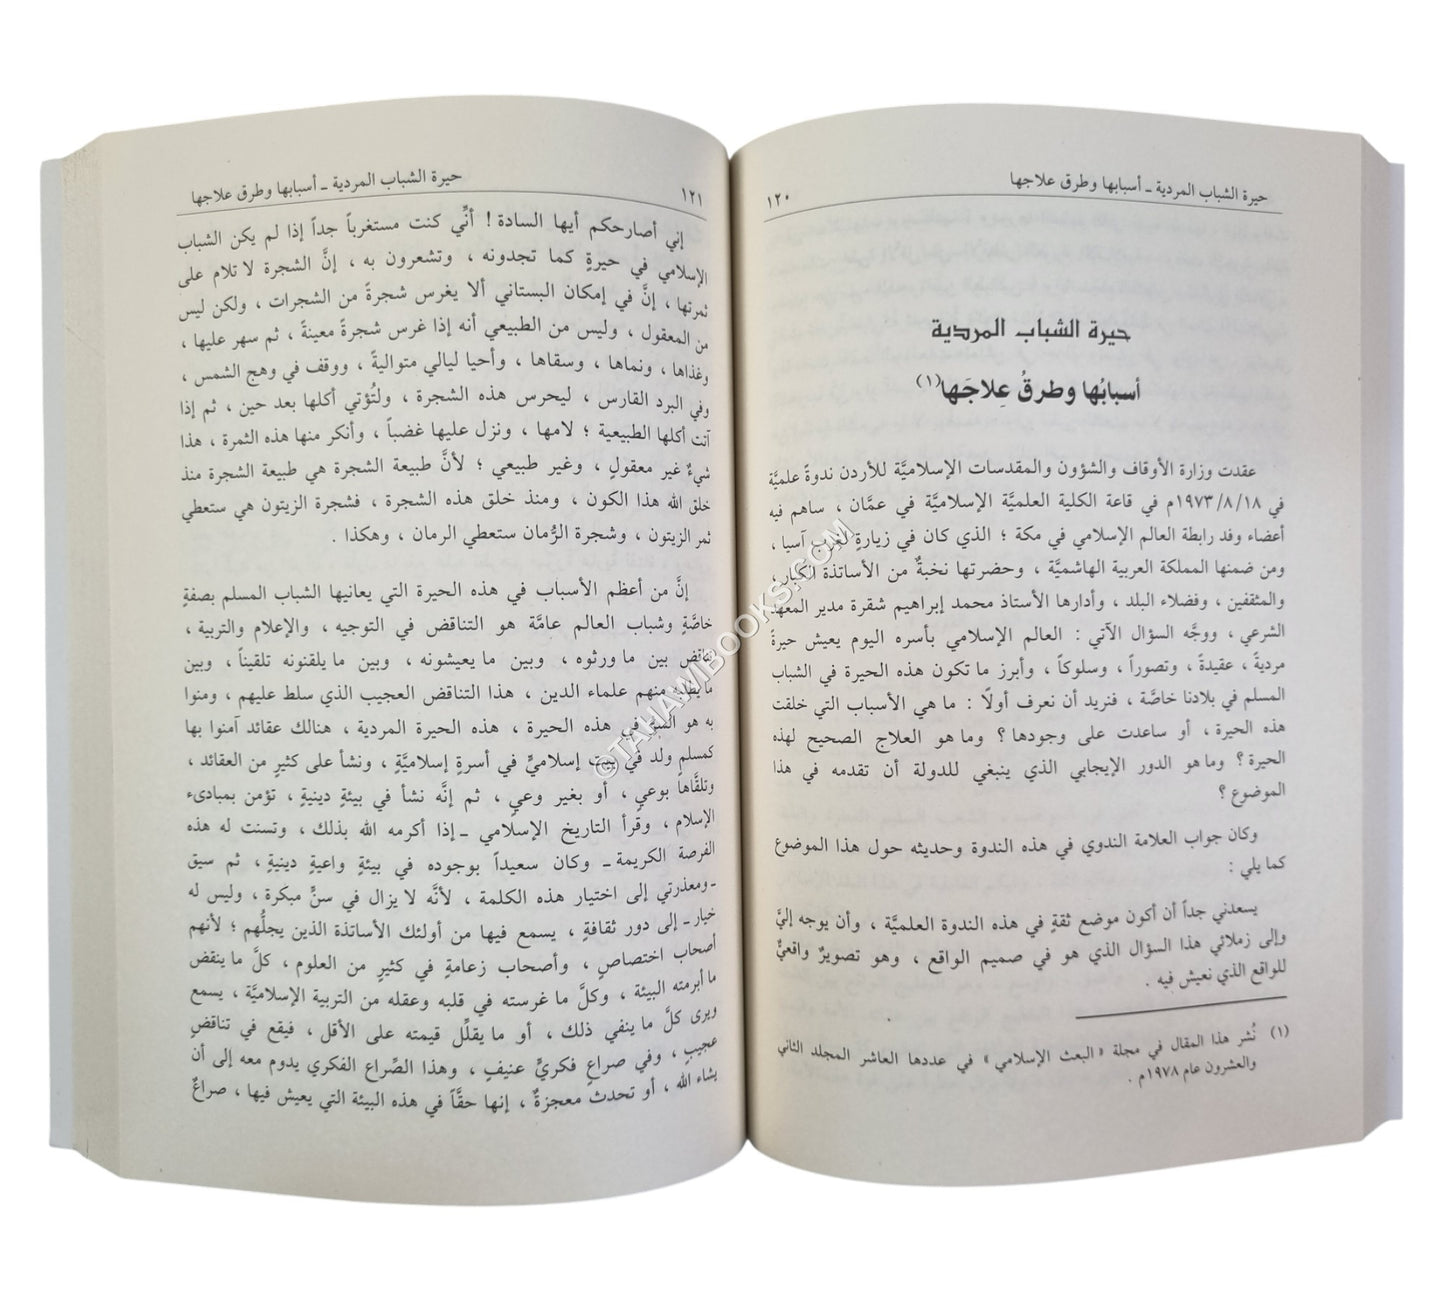 حيرة الشباب المردية ـ أسبابها وطرق علاجها
١٢٠
حيرة الشباب المردية
أسبابُها وطرقُ عِلاجَها(١)
عقدت وزارة الأوقاف والشؤون والمقدسات الإسلاميَّة للأردن ندوةً علميَّة
في ١٩٧٣/٨/١٨م في قاعة الكلية العلميَّة الإسلاميَّة في عمَّان ، ساهم فيه
أعضاء وفد رابطة العالم الإسلامي في مكة ؛ الذي كان في زيارةٍ لغرب آسيا ،
ومن ضمنها المملكة العربية الهاشميَّة ، وحضرتها نخبةٌ من الأساتذة الكبار ،
والمثقفين ، وفضلاء البلد ، وأدارها الأستاذ محمد إبراهيم شقرة مدير المعهد
الشرعي ، ووجَّه السؤال الآتي : العالم الإسلامي بأسره اليوم يعيش حيرةً
مرديةً ، عقيدةً ، وتصوراً ، وسلوكاً ، وأبرز ما تكون هذه الحيرة في الشباب
المسلم في بلادنا خاصَّة ، فنريد أن نعرف أولاً : ما هي الأسباب التي خلقت
هذه الحيرة ، أو ساعدت على وجودها ؟ وما هو العلاج الصحيح لهذه
الحيرة ؟ وما هو الدور الإيجابي الذي ينبغي للدولة أن تقدمه في هذا
الموضوع ؟
وكان جواب العلامة الندوي في هذه الندوة وحديثه حول هذا الموضوع
كما يلي :
يسعدني جداً أن أكون موضع ثقةٍ في هذه الندوة العلميَّة ، وأن يوجه إليَّ
وإلى زملائي هذا السؤال الذي هو في صميم الواقع ، وهو تصويرٌ واقعيٌّ
للواقع الذي نعيش فيه .
(١) نُشر هذا المقال في مجلة « البعث الإسلامي » في عددها العاشر المجلد الثاني
والعشرون عام ١٩٧٨م .
حيرة الشباب المردية ـ أسبابها وطرق علاجها
١٢١
إني أصارحكم أيها السادة ! أنِّي كنت مستغرباً جداً إذا لم يكن الشباب
الإسلامي في حيرةٍ كما تجدونه ، وتشعرون به ، إنَّ الشجرة لا تلام على
ثمرتها ، إنَّ في إمكان البستاني ألا يغرس شجرةً من الشجرات ، ولكن ليس
من المعقول ، وليس من الطبيعي أنه إذا غرس شجرةً معينةً ، ثم سهر عليها ،
وغذاها ، ونماها ، وسقاها ، وأحيا ليالي متواليةً ، ووقف في وهج الشمس ،
وفي البرد القارس ، ليحرس هذه الشجرة ، ولتُؤتي أكلها بعد حين ، ثم إذا
آتت أكلها الطبيعية ؛ لامها ، ونزل عليها غضباً ، وأنكر منها هذه الثمرة ، هذا
شيءٌ غير معقولٍ ، وغير طبيعي ؛ لأنَّ طبيعة الشجرة هي طبيعة الشجرة منذ
خلق الله هذا الكون ، ومنذ خلق هذه الشجرة ، فشجرة الزيتون هي ستعطي
ثمر الزيتون ، وشجرة الرُّمان ستعطي الرمان ، وهكذا .
إنَّ من أعظم الأسباب في هذه الحيرة التي يعانيها الشباب المسلم بصفةٍ
خاصَّةٍ وشباب العالم عامَّة هو التناقض في التوجيه ، والإعلام والتربية ،
تناقض بين ما ورثوه ، وبين ما يعيشونه ، وبين ما يلقنونه تلقيناً ، وبين
ما يطلبه منهم علماء الدين ، هذا التناقض العجيب الذي سلط عليهم ، ومنوا
به هو السبب في هذه الحيرة ، هذه الحيرة المردية ، هنالك عقائد آمنوا بها
كمسلمٍ ولد في بيتٍ إسلاميٍّ في أسرةٍ إسلاميَّةٍ ، ونشأ على كثيرٍ من العقائد ،
وتلقَّاها بوعيٍ ، أو بغير وعيٍ ، ثم إنَّه نشأ في بيئةٍ دينيةٍ ، تؤمن بمبادىء
الإسلام ، وقرأ التاريخ الإسلامي ـ إذا أكرمه الله بذلك ، وتسنت له هذه
الفرصة الكريمة ـ وكان سعيداً بوجوده في بيئةٍ واعيةٍ دينيةٍ ، ثم سيق
ـ ومعذرتي إلى اختيار هذه الكلمة ، لأنَّه لا يزال في سنٍّ مبكرة ، وليس له
خيار ـ إلى دور ثقافةٍ ، يسمع فيها من أولئك الأساتذة الذين يجلُّهم ؛ لأنهم
أصحاب اختصاصٍ ، وأصحاب زعامةٍ في كثيرٍ من العلوم ، كلَّ ما ينقض
ما أبرمته البيئة ، وكلَّ ما غرسته في قلبه وعقله من التربية الإسلاميَّة ، يسمع
ويرى كلَّ ما ينفي ذلك ، أو ما يقلِّل قيمته على الأقل ، فيقع في تناقضٍ
عجيبٍ ، وفي صراعٍ فكريٍّ عنيفٍ ، وهذا الصِّراع الفكري يدوم معه إلى أن
يشاء الله ، أو تحدث معجزةٌ ، إنها حقَّاً في هذه البيئة التي يعيش فيها ، صراعٌ
©TAHAWIBOOKS.COM